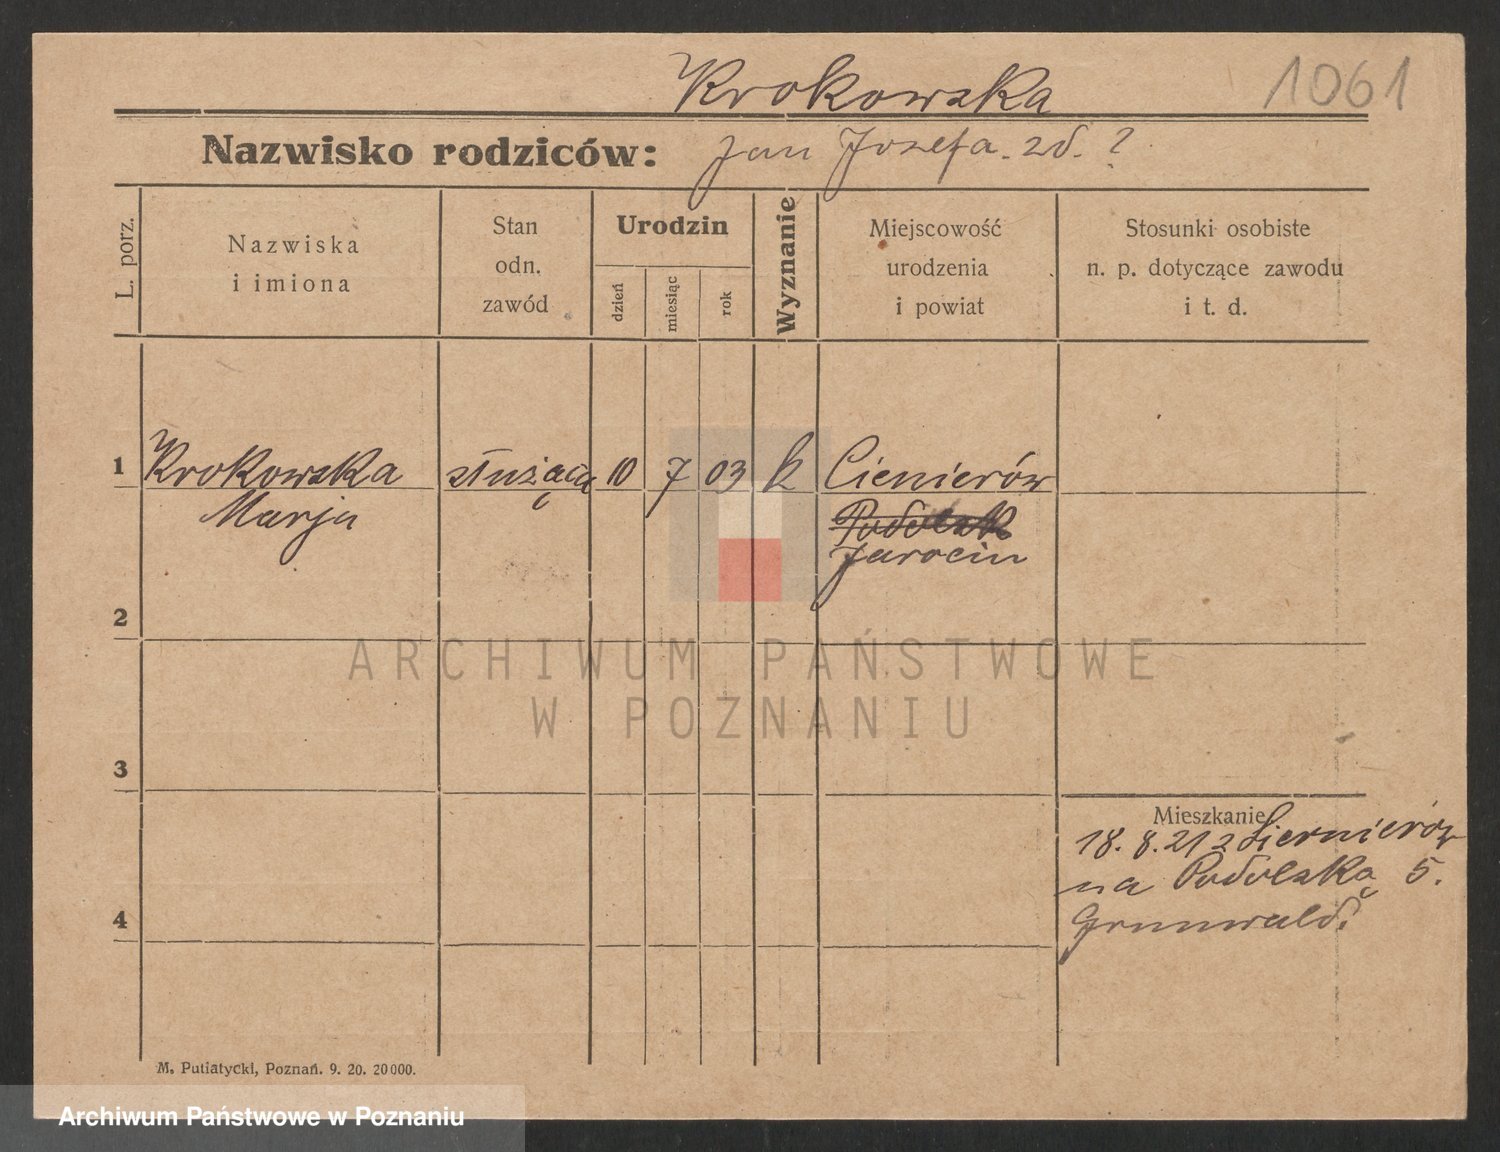 Krokowska
1061
Nazwisko rodziców: Jan Józefa. zd. ?
L. porz.
Nazwiska
i imiona
Stan
odn.
zawód
Urodzin
dzień
miesiąc
rok
Wyznanie
Miejscowość
urodzenia
i powiat
Stosunki osobiste
n. p. dotyczące zawodu
i t. d.
1 Krokowska służąca 10 7 03 k Cienierów
Marja
Podolsk
Jarocin
2
ARCHIWUM PAŃSTWOWE
W POZNANIU
3
Mieszkanie
18. 8. 21 z
na Podolską 5.
4 Grunwald.
M. Putiatycki, Poznań. 9. 20. 20000.
Archiwum Państwowe w Poznaniu